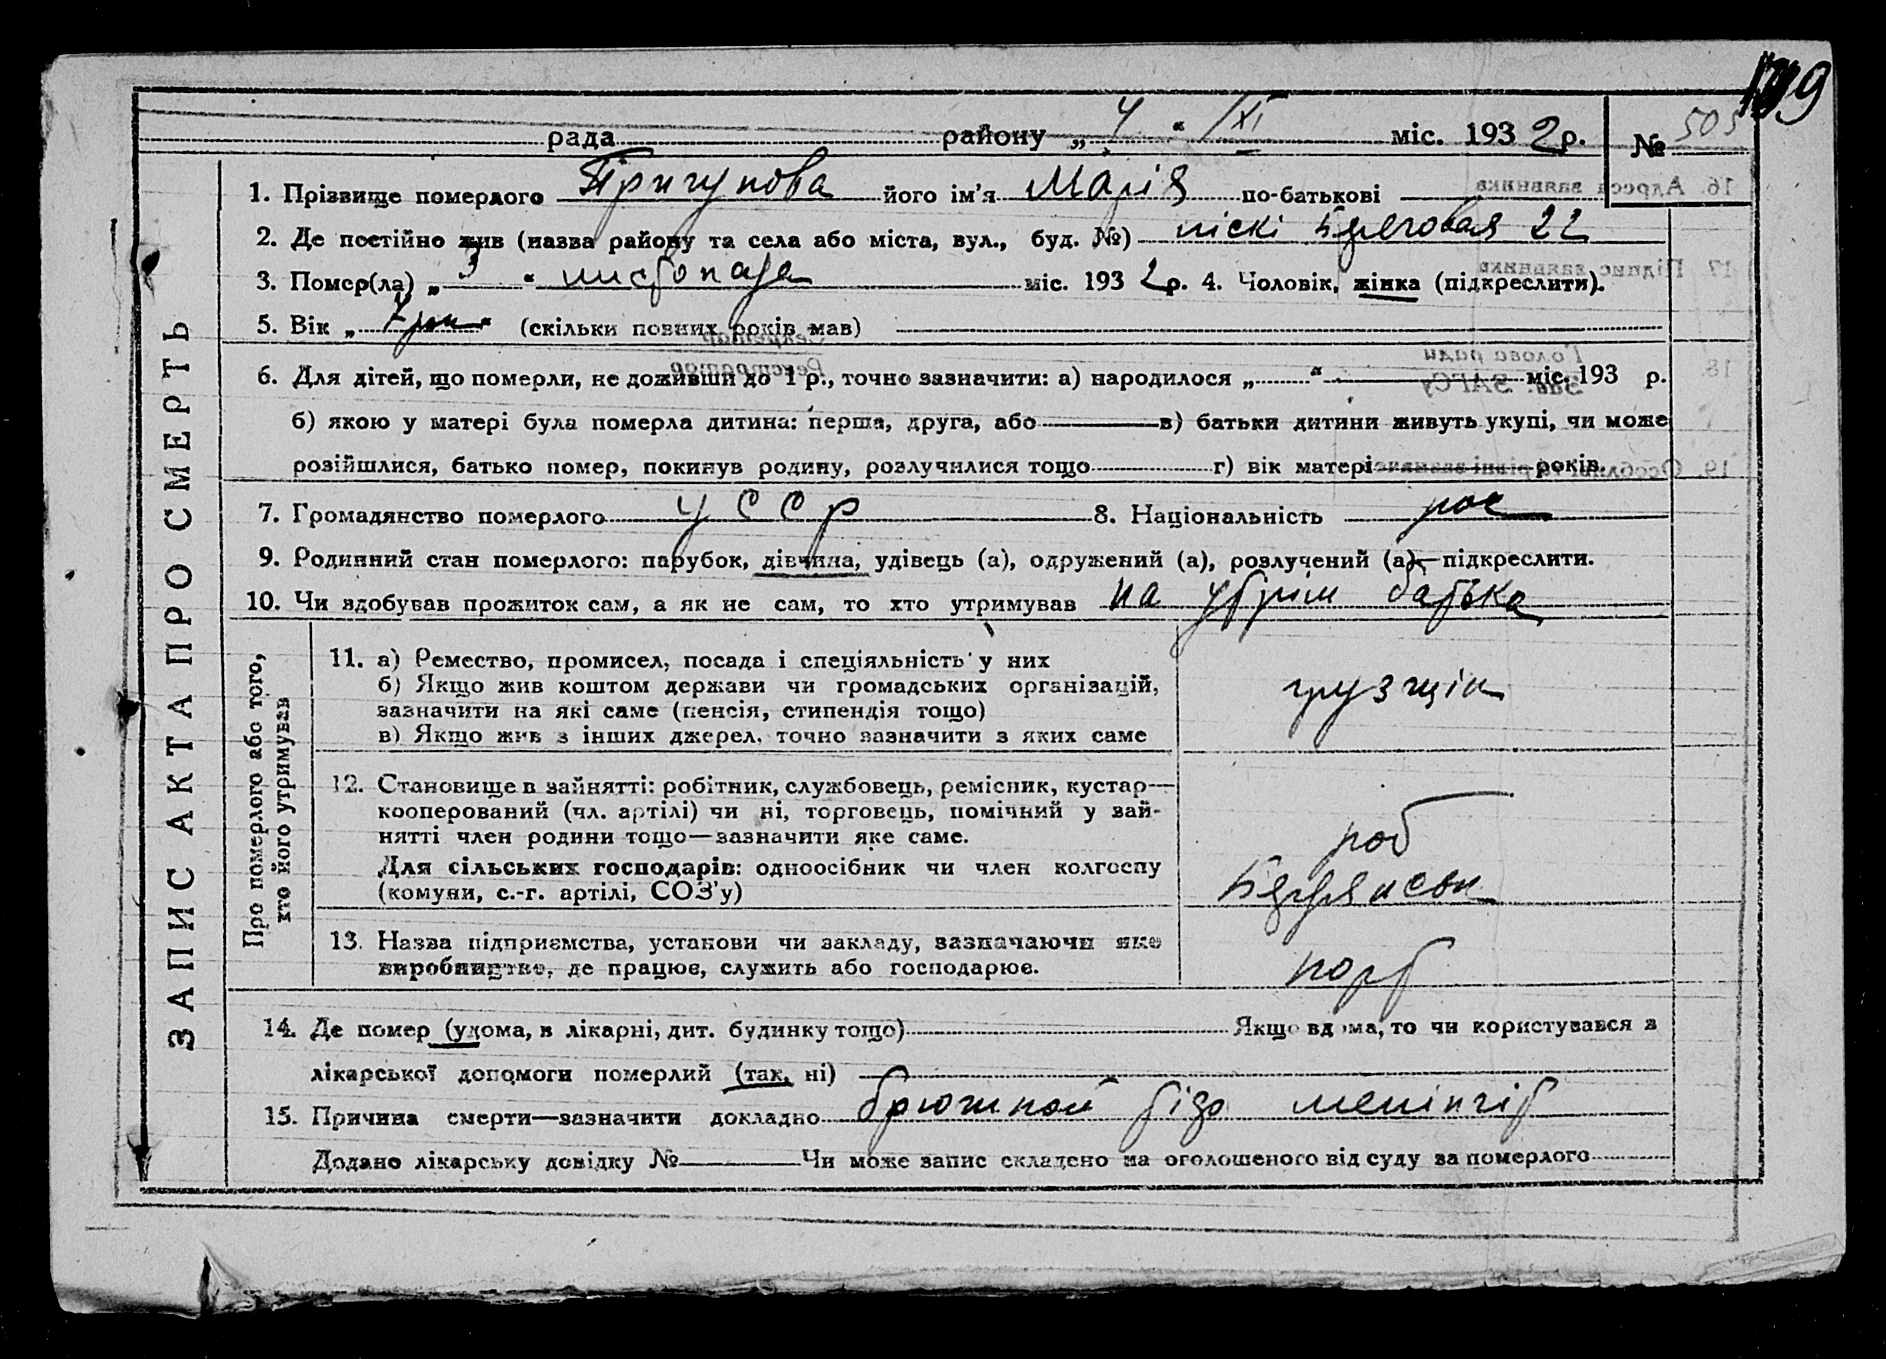 рада района „ 4 “ /XI міс. 193 2 р. № 505
1. Прізвище померлого Пригунова його ім'я Марія по-батькові
2. Де постійно жив (назва району та села або міста, вул., буд. №) піскі Береговая 22
3. Помер(ла) „ 3 “ листопада міс. 193 2 р. 4. Чоловік, жінка (підкреслити).
5. Вік „ “ (скільки повних років мав)
6. Для дітей, що померли, не доживши до 1 р., точно зазначити: а) народилося „ “ міс. 193 р.
б) якою у матері була померла дитина: перша, друга, або в) батьки дитини живуть укупі, чи може
розійшлися, батько помер, покинув родину, розлучилися тощо г) вік матері років.
7. Громадянство померлого УССР 8. Національність рос
9. Родинний стан померлого: парубок, дівчина, удівець (а), одружений (а), розлучений (а)—підкреслити.
10. Чи здобував прожиток сам, а як не сам, то хто утримував на утрим батька
ЗАПИС АКТА ПРО СМЕРТЬ
Про померлого або того,
хто його утримував
11. а) Ремество, промисел, посада і спеціяльність у них
б) Якщо жив коштом держави чи громадських організацій,
зазначити на які саме (пенсія, стипендія тощо)
в) Якщо жив з інших джерел, точно зазначити з яких саме
грузщік
12. Становище в зайнятті: робітник, службовець, ремісник, кустар—
кооперований (чл. артілі) чи ні, торговець, помічний у зай-
нятті член родини тощо—зазначити яке саме.
Для сільських господарів: одноосібник чи член колгоспу
(комуни, с.-г. артілі, СОЗ'у)
роб
13. Назва підприємства, установи чи закладу, зазначаючи яке
виробництво, де працює, служить або господарює.
Бердянськ
порт
14. Де помер (удома, в лікарні, дит. будинку тощо) Якщо вдома, то чи користувався з
лікарської допомоги померлий (так, ні)
15. Причина смерти—зазначити докладно брюшной тіф менінгіт
Додано лікарську довідку № Чи може запис складено на оголошеного від суду за померлого
16. Адреса заявника
17. Підпис заявника
18. Голова ради
Зав. ЗАГСу
Секретар
Реєстратор